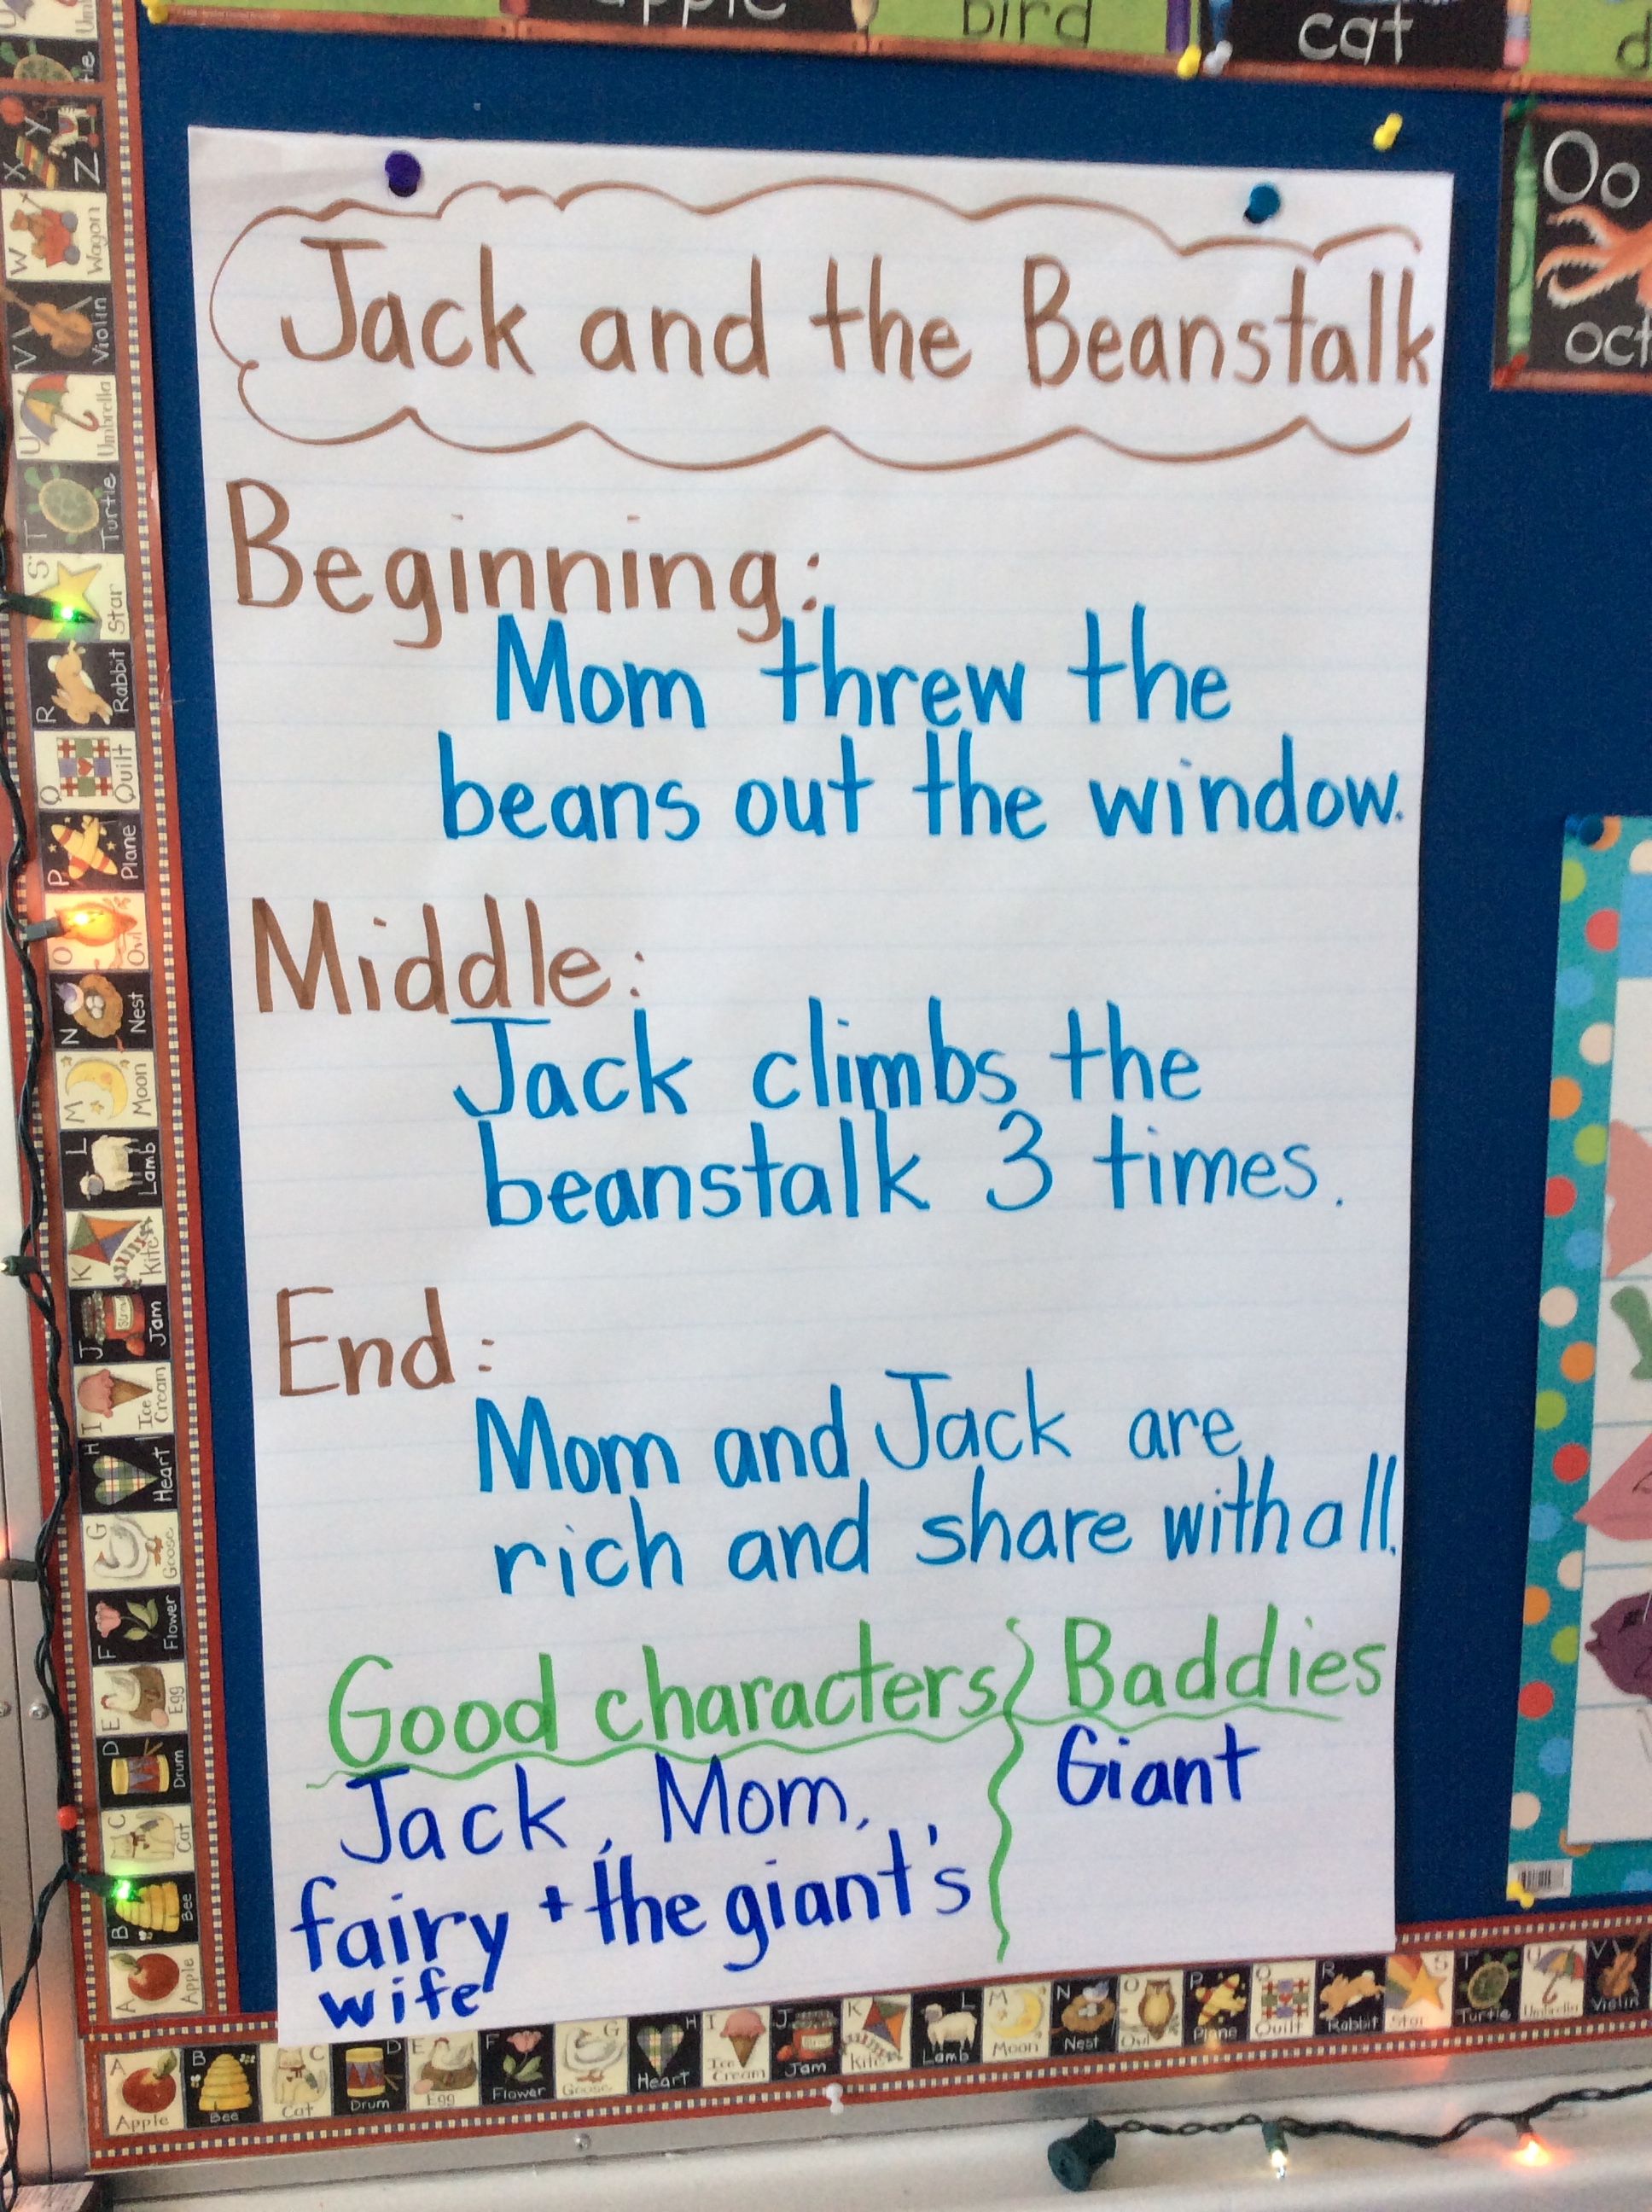 bird
cat
Oo
Jack and the Beanstalk
Beginning:
Mom threw the
beans out the window.
Middle:
Jack climbs the
beanstalk 3 times.
End:
Mom and Jack are
rich and share with all.
Good characters Baddies
Jack, Mom, Giant
fairy + the giant's
wife
X Y Z
W Wagon
V Violin
U Umbrella
T Turtle
S Star
R Rabbit
Q Quilt
P Plane
O Owl
N Nest
M Moon
L Lamb
K Kite
J Jam
I Ice Cream
H Heart
G Goose
F Flower
E Egg
D Drum
C Cat
B Bee
A Apple
A Apple
B Bee
C Cat
D Drum
E Egg
F Flower
G Goose
H Heart
I Ice Cream
J Jam
K Kite
L Lamb
M Moon
N Nest
O Owl
P Plane
Q Quilt
R Rabbit
S Star
T Turtle
U Umbrella
V Violin